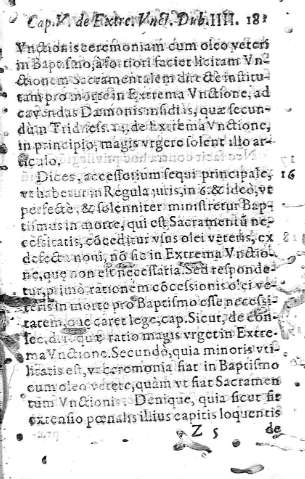 Cap. V. de Extre. Vnct. Dub. IIII. 181
Vnctionis ceremoniam cum oleo veteri
in Baptismo, à fortiori faciet licitam Vn-
ctionem Sacramentalem directè institu-
tam pro morte in Extrema Vnctione, ad
cauendas Dæmonis insidias, quæ secun-
dùm Trid. sess. 14. de Extrema Vnctione,
in principio, magis vrgere solent illo ar-
ticulo.
Dices, accessorium sequi principale,
vt habetur in Regula iuris, in 6. & ideò, vt
perfectè, & solenniter ministretur Bap-
tismus in morte, qui est Sacramentũ ne-
cessitatis, cõceditur vsus olei veteris, ex
defectu noui, nõ sic in Extrema Vnctio-
ne, que non est necessaria. Sed responde-
tur, primò rationẽm cõcessionis olei ve-
teris in morte pro Baptismo esse necessi-
tatem, quæ caret lege, cap. Sicut, de con-
sec. d. 1. quæ ratio magis vrget in Extre-
ma Vnctione. Secundò, quia minoris vti-
litatis est, vt ceremonia fiat in Baptismo
cum oleo vetere, quàm vt fiat Sacramen-
tum Vnctionis. Denique, quia sicut fit
extensio pœnalis illius capitis loquentis
Z 5 de
16